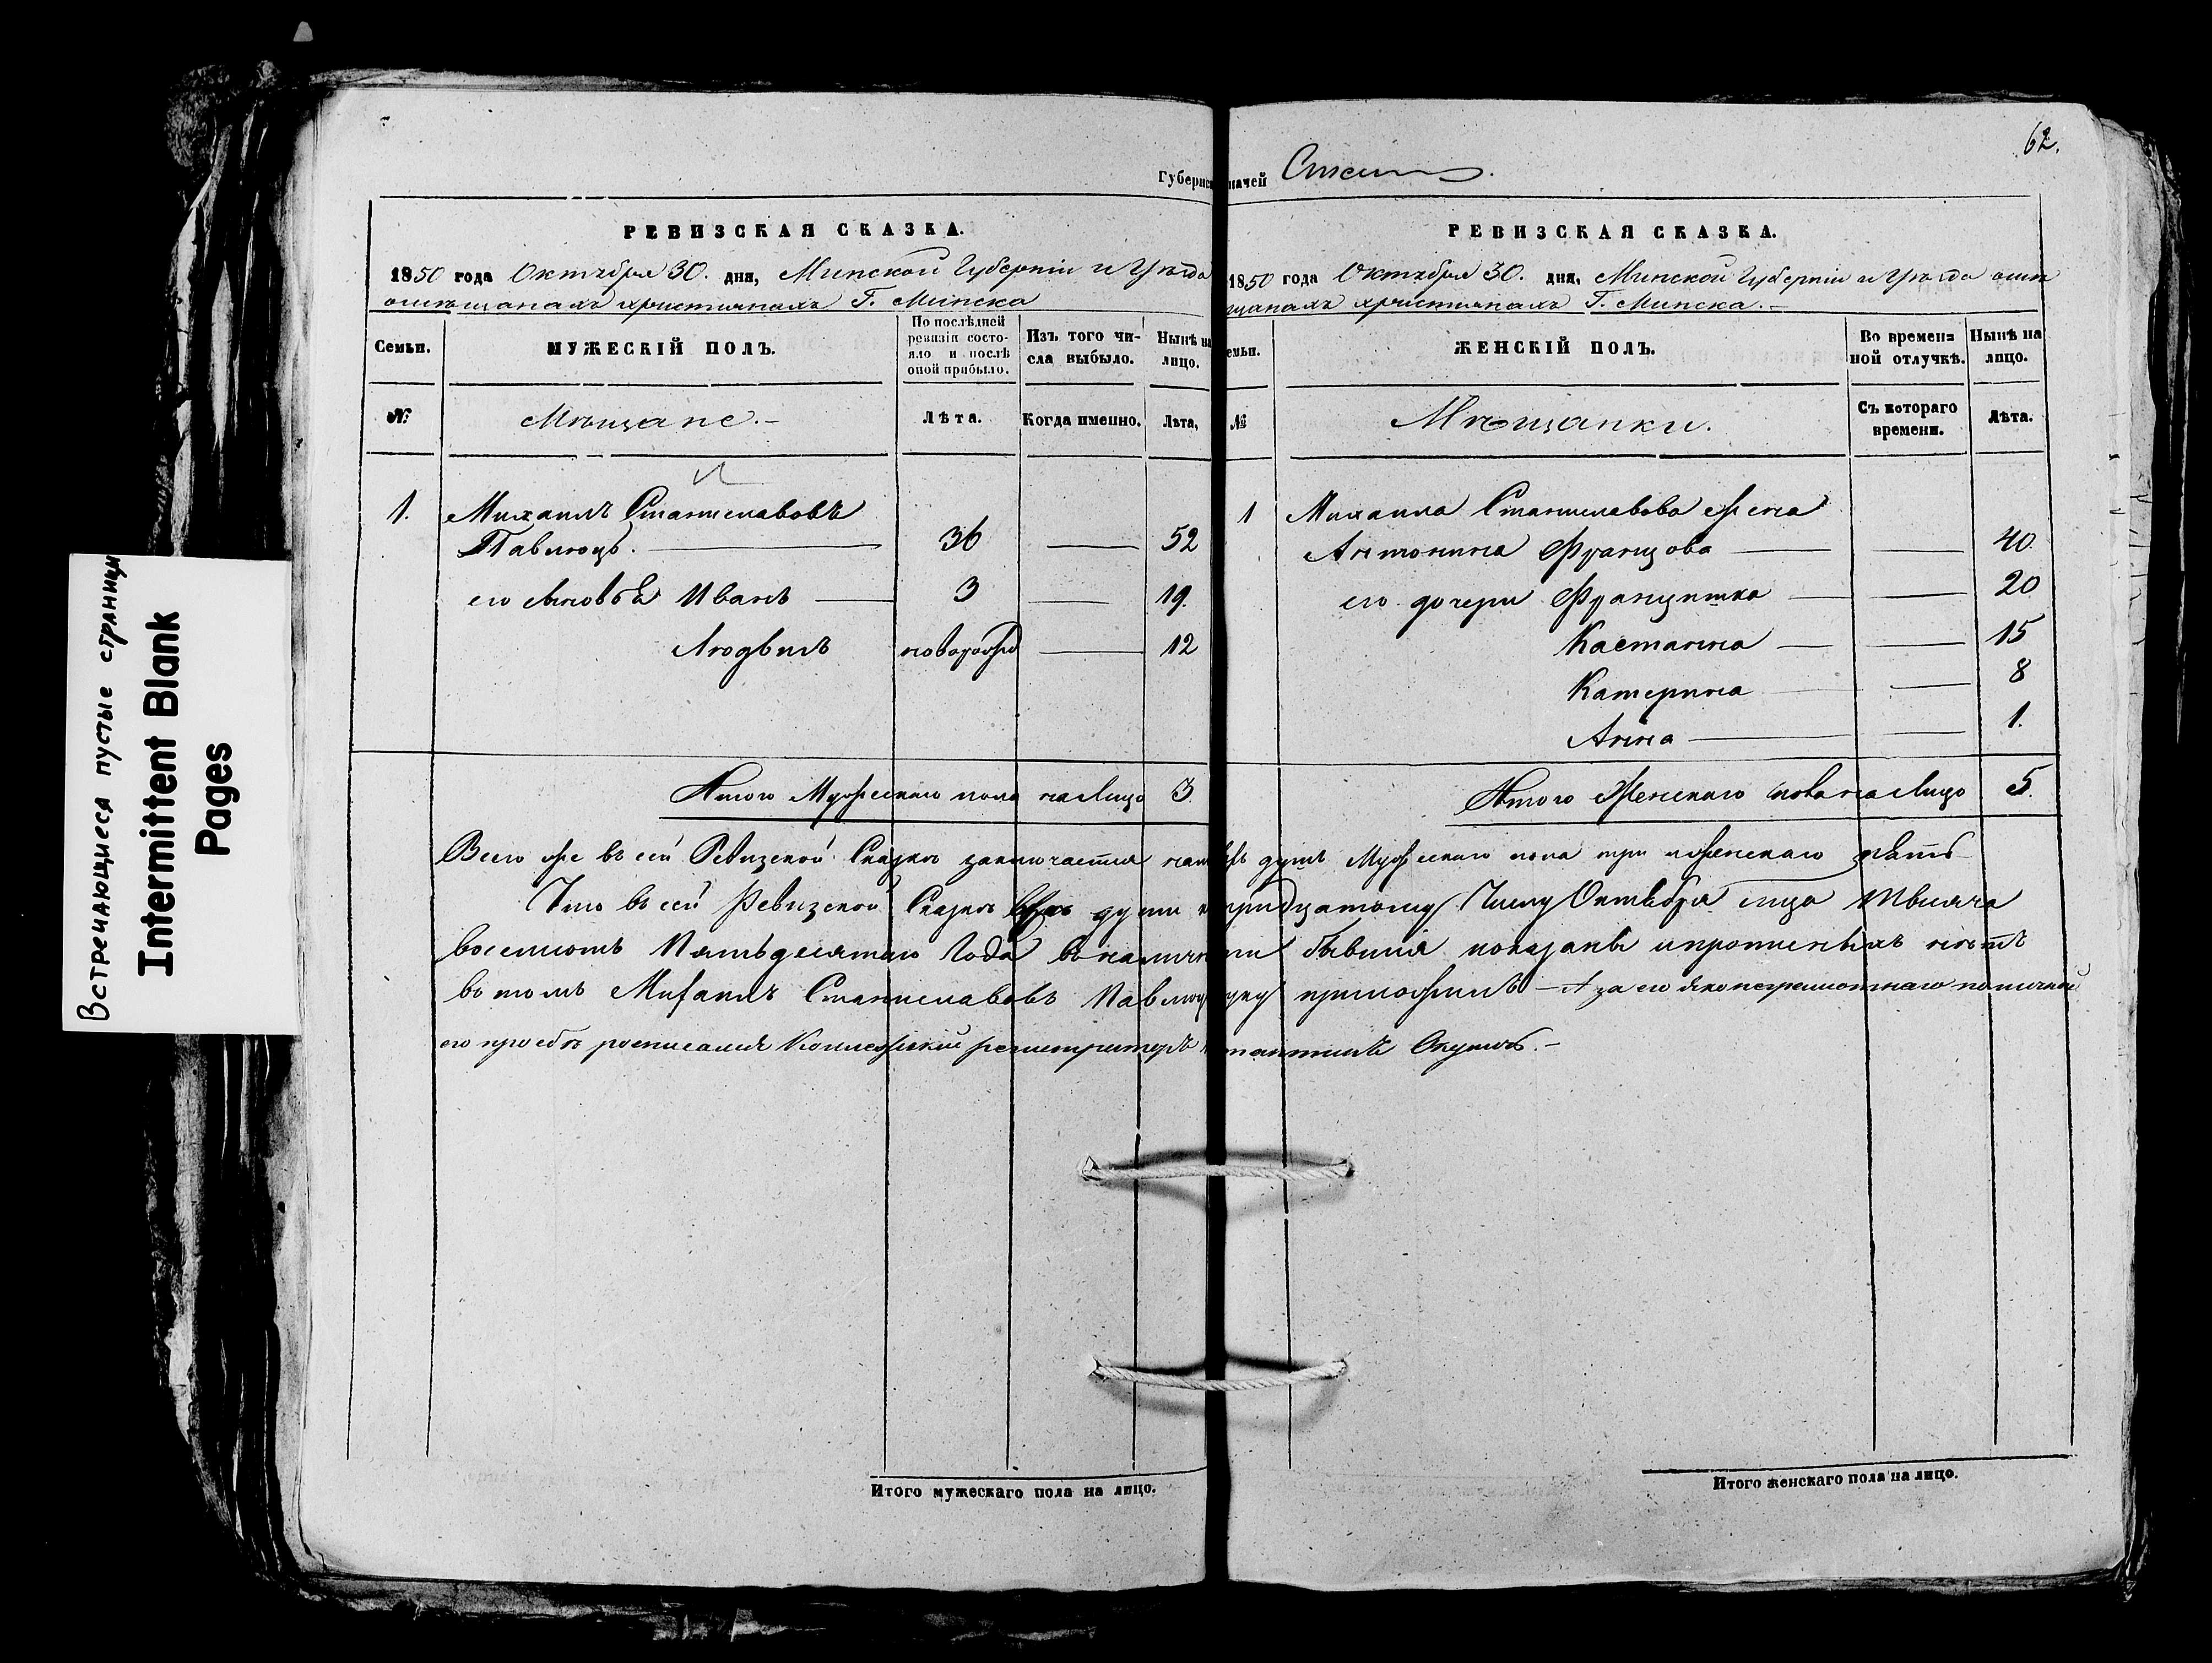 62.
Губернс
начей
РЕВИЗСКАЯ СКАЗКА.
1850 года Октября 30. дня, Минской Губерніи и Уѣзда
о мѣщанахъ христіянахъ Г. Минска
Семьи.
МУЖЕСКІЙ ПОЛЪ.
По послѣдней ревизіи состо-
яло и послѣ
оной прибыло.
Изъ того чи-
сла выбыло.
Нынѣ на
лицо.
№
Мѣщане.-
Лѣта.
Когда именно.
Лѣта,
1. Михаилъ Станиславовъ
Павлюцъ. 36 52
его сыновья Иванъ 3 19.
Людвигъ новорожд 12
Итого Мужескаго пола на Лицо 3.
РЕВИЗСКАЯ СКАЗКА.
1850 года Октября 30. дня, Минской Губерніи и Уѣзда о мѣ
щанахъ христіянахъ Г. Минска.-
емьи.
ЖЕНСКІЙ ПОЛЪ.
Во времен=
ной отлучкѣ.
Нынѣ на
лицо.
№
Мѣщанки.
Съ котораго
времени.
Лѣта.
1 Михаила Станиславова жена
Антонина Францова 40.
его дочери Францишка 20
Констанція 15
Катерина 8
Анна 1.
Итого Женскаго пола на Лицо 5.
Всего же въ сей Ревизской Сказкѣ заключается душъ Мужескаго пола три женскаго пять
Что въ сей Ревизской Сказкѣ всѣ души к тридцатому Числу Октября мца тысяча
восемсотъ Пятьдесятаго Года въ наличности бывшія показаны и прописныхъ нѣтъ
въ томъ Михаилъ Станиславовъ Павлюцъ руку приложилъ - А за его неграмотнаго по личной
его просьбѣ росписался Коллежскій регистраторъ
Итого мужескаго пола на лицо.
Итого женскаго пола на лицо.
Встречающиеся пустые страницы
Intermittent Blank
Pages